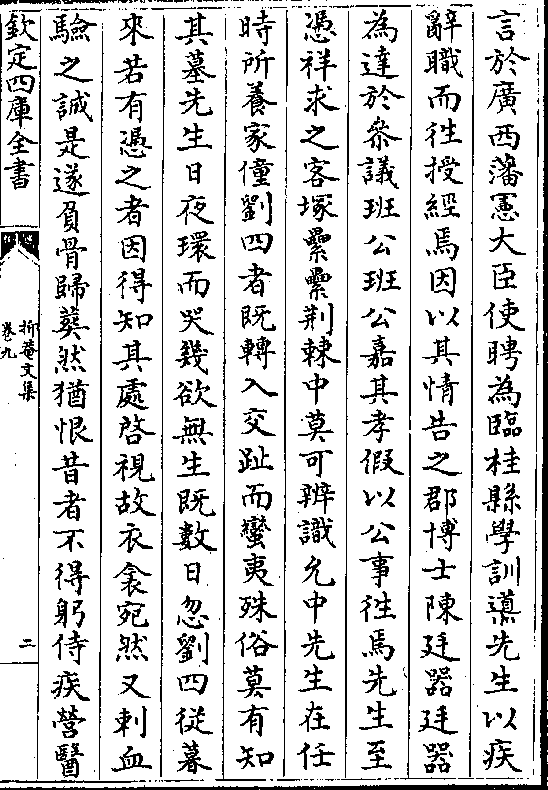 言於廣西藩憲大臣使聘為臨桂縣學訓導先生以疾
辭職而徃授經焉因以其情告之郡博士陳廷器廷器
為達於叅議班公班公嘉其孝假以公事徃焉先生至
憑祥求之客塚纍纍荆棘中莫可辨識允中先生在任
時所養家僮劉四者既轉入交趾而蠻夷殊俗莫有知
其墓先生日夜環而哭幾欲無生既數日忽劉四從暮
來若有憑之者因得知其處啓視故衣衾宛然又刺血
驗之誠是遂負骨歸葬然猶恨昔者不得躬侍疾營醫
欽定四庫全書
抑菴文集
卷九
二